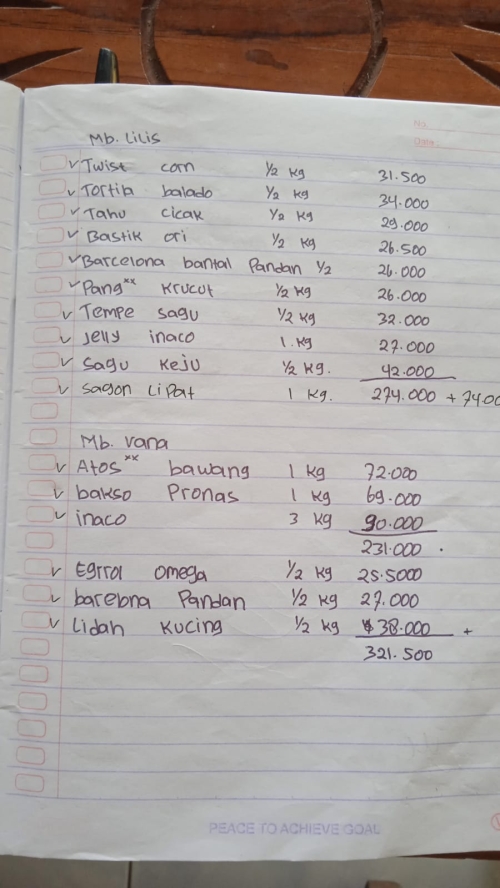 No.
Date:
Mb. Lilis
✓ Twist corn 1/2 kg 31.500
✓ Tortila balado 1/2 kg 34.000
✓ Tahu cicak 1/2 kg 29.000
✓ Bastik ori 1/2 kg 26.500
✓ Barcelona bantal Pandan 1/2 26.000
✓ Pang** Krucut 1/2 kg 26.000
✓ Tempe sagu 1/2 kg 32.000
✓ Jelly inaco 1 kg 27.000
✓ Sagu keju 1/2 kg. 42.000
✓ Sagon Lipat 1 kg. 274.000 + 74.00
Mb. Vana
✓ Atos** bawang 1 kg 72.000
✓ bakso Pronas 1 kg 69.000
✓ inaco 3 kg 90.000
231.000 .
✓ Egrrol omega 1/2 kg 25.5000
✓ barelona Pandan 1/2 kg 27.000
✓ Lidah Kucing 1/2 kg 38.000 +
321.500
PEACE TO ACHIEVE GOAL